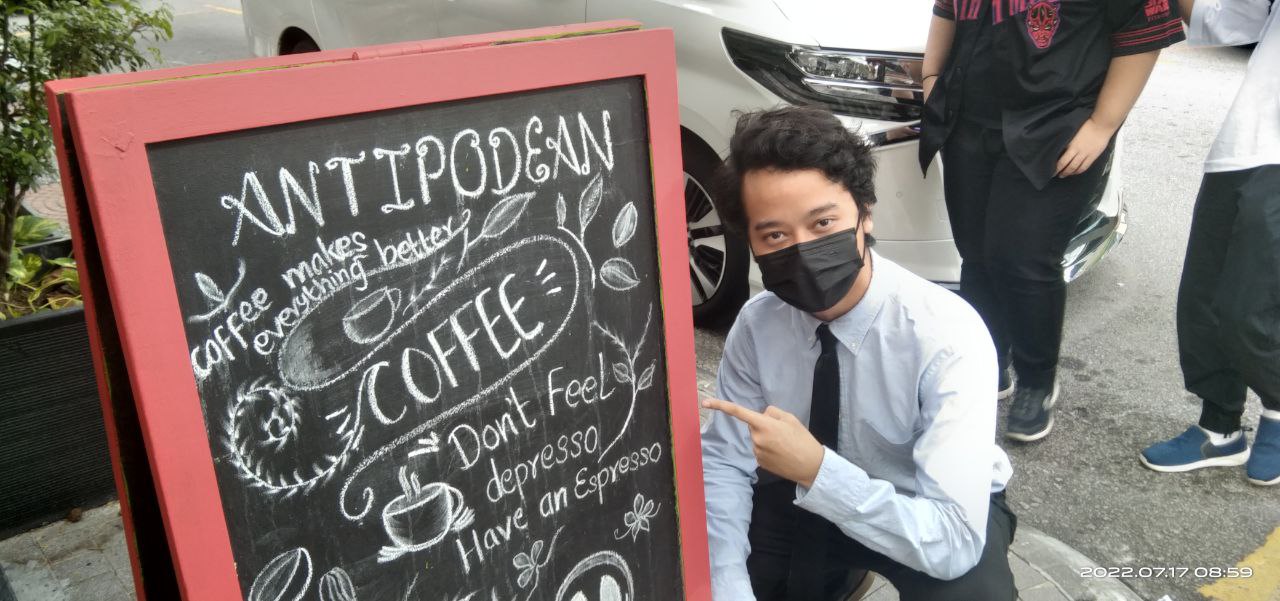 ANTIPODEAN
coffee makes
everything better
COFFEE
Don't Feel
depresso
Have an Espresso
2022.07.17 08:59